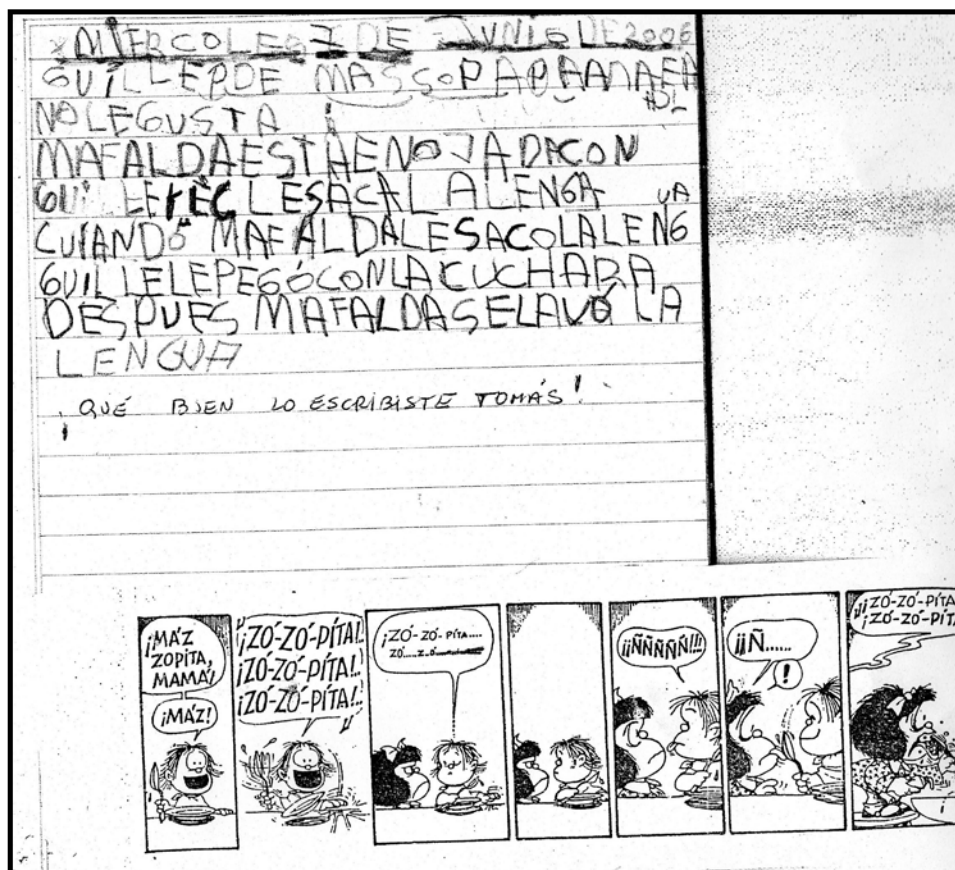 MIERCOLES 7 DE JUNIO DE 2006
GUILLE PDE MASSOPA PA A
NOLEGUSTA
MAFALDAESTÁENOJADACON
GUILLE LESACALALENGA UA
CUIANDO MAFALDALESACOLALENG
GUILLELEPEGÓCONLACUCHARA
DESPUES MAFALDASELAVÓ LA
LENGUA
¡QUÉ BIEN LO ESCRIBISTE TOMÁS!
¡MÁ'Z
ZOPITA,
MAMÁ!
¡MÁ'Z!
¡ZÓ-ZÓ-PÍTA!..
¡ZÓ-ZÓ-PÍTA!..
¡ZÓ-ZÓ-PÍTA!..
¡ZÓ-ZÓ-PÍTA....
ZÓ.....Z..Ó
¡¡ÑÑÑÑÑ!!!
¡¡Ñ......
!
¡¡ZO-ZO-PÍTA
¡ZÓ-ZÓ-PÍT